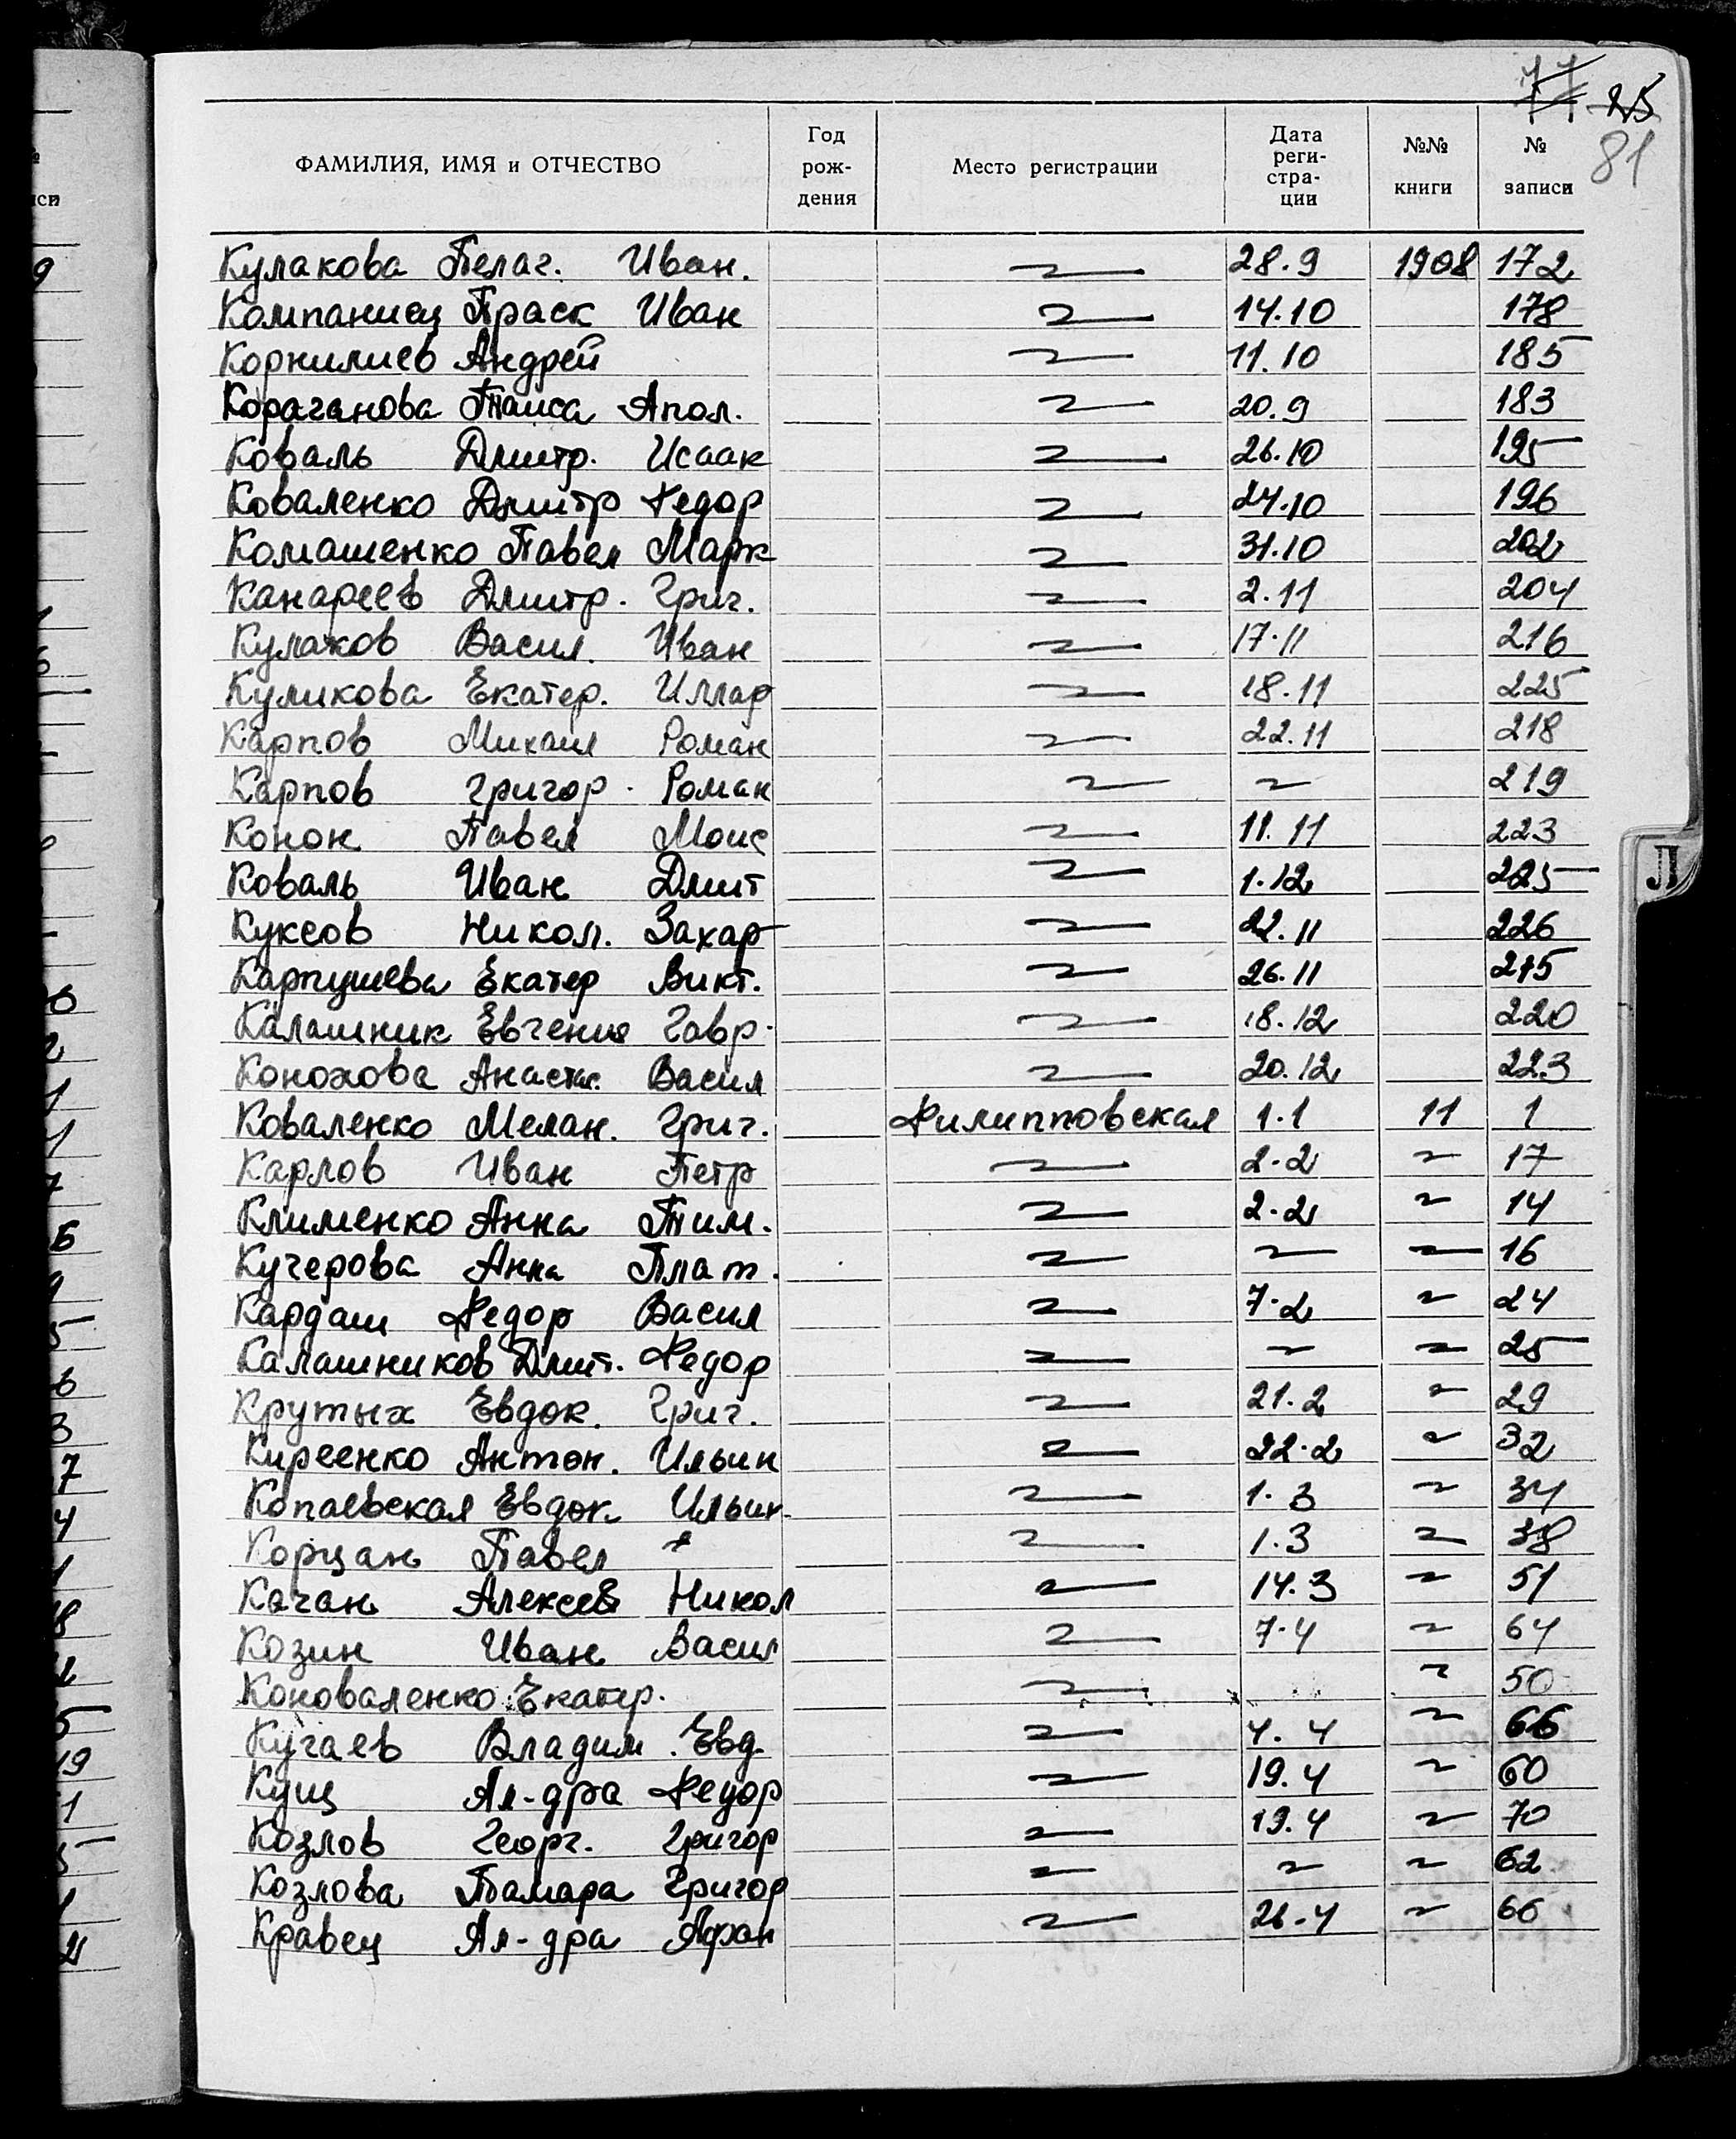 77 25
81
ФАМИЛИЯ, ИМЯ и ОТЧЕСТВО Год рож- дения Место регистрации Дата реги- стра- ции №№ книги № записи
Кулакова Пелаг. Иван. 28.9 1908 172
Компаниец Праск Иван 14.10 178
Корнилиев Андрей 11.10 185
Кораганова Таиса Апол. 20.9 183
Коваль Дмитр. Исаак 26.10 195
Коваленко Дмитр Федор 24.10 196
Комашенко Павел Марк 31.10 202
Канареев Дмитр. Григ. 2.11 204
Кулаков Васил. Иван 17.11 216
Куликова Екатер. Иллар 18.11 225
Карпов Михаил Роман 22.11 218
Карпов Григор. Роман 219
Конон Павел Моис 11.11 223
Коваль Иван Дмит 1.12 225
Куксов Никол. Захар 22.11 226
Карпушева Екатер Викт. 26.11 215
Калашник Евгения Гавр. 18.12 220
Конохова Анастас. Васил 20.12 223
Коваленко Мелан. Григ. Филипповская 1.1 11 1
Карлов Иван Петр 2.2 17
Клименко Анна Тим. 2.2 14
Кучерова Анна Плат. 16
Кардаш Федор Васил 7.2 24
Калашников Дмит. Федор 25
Крутых Евдок. Григ. 21.2 29
Киреенко Антон. Ильин 22.2 32
Копаевская Евдок. Ильин. 1.3 34
Корцан Павел 1.3 38
Качан Алексей Никол 14.3 51
Козин Иван Васил 7.4 64
Коноваленко Екатер. 50
Кугаев Владим. Евд. 4.4 66
Кущ Ал-дра Федор 19.4 60
Козлов Георг. Григор 19.4 70
Козлова Тамара Григор 62
Кравец Ал-дра Афан 26.4 66
Л